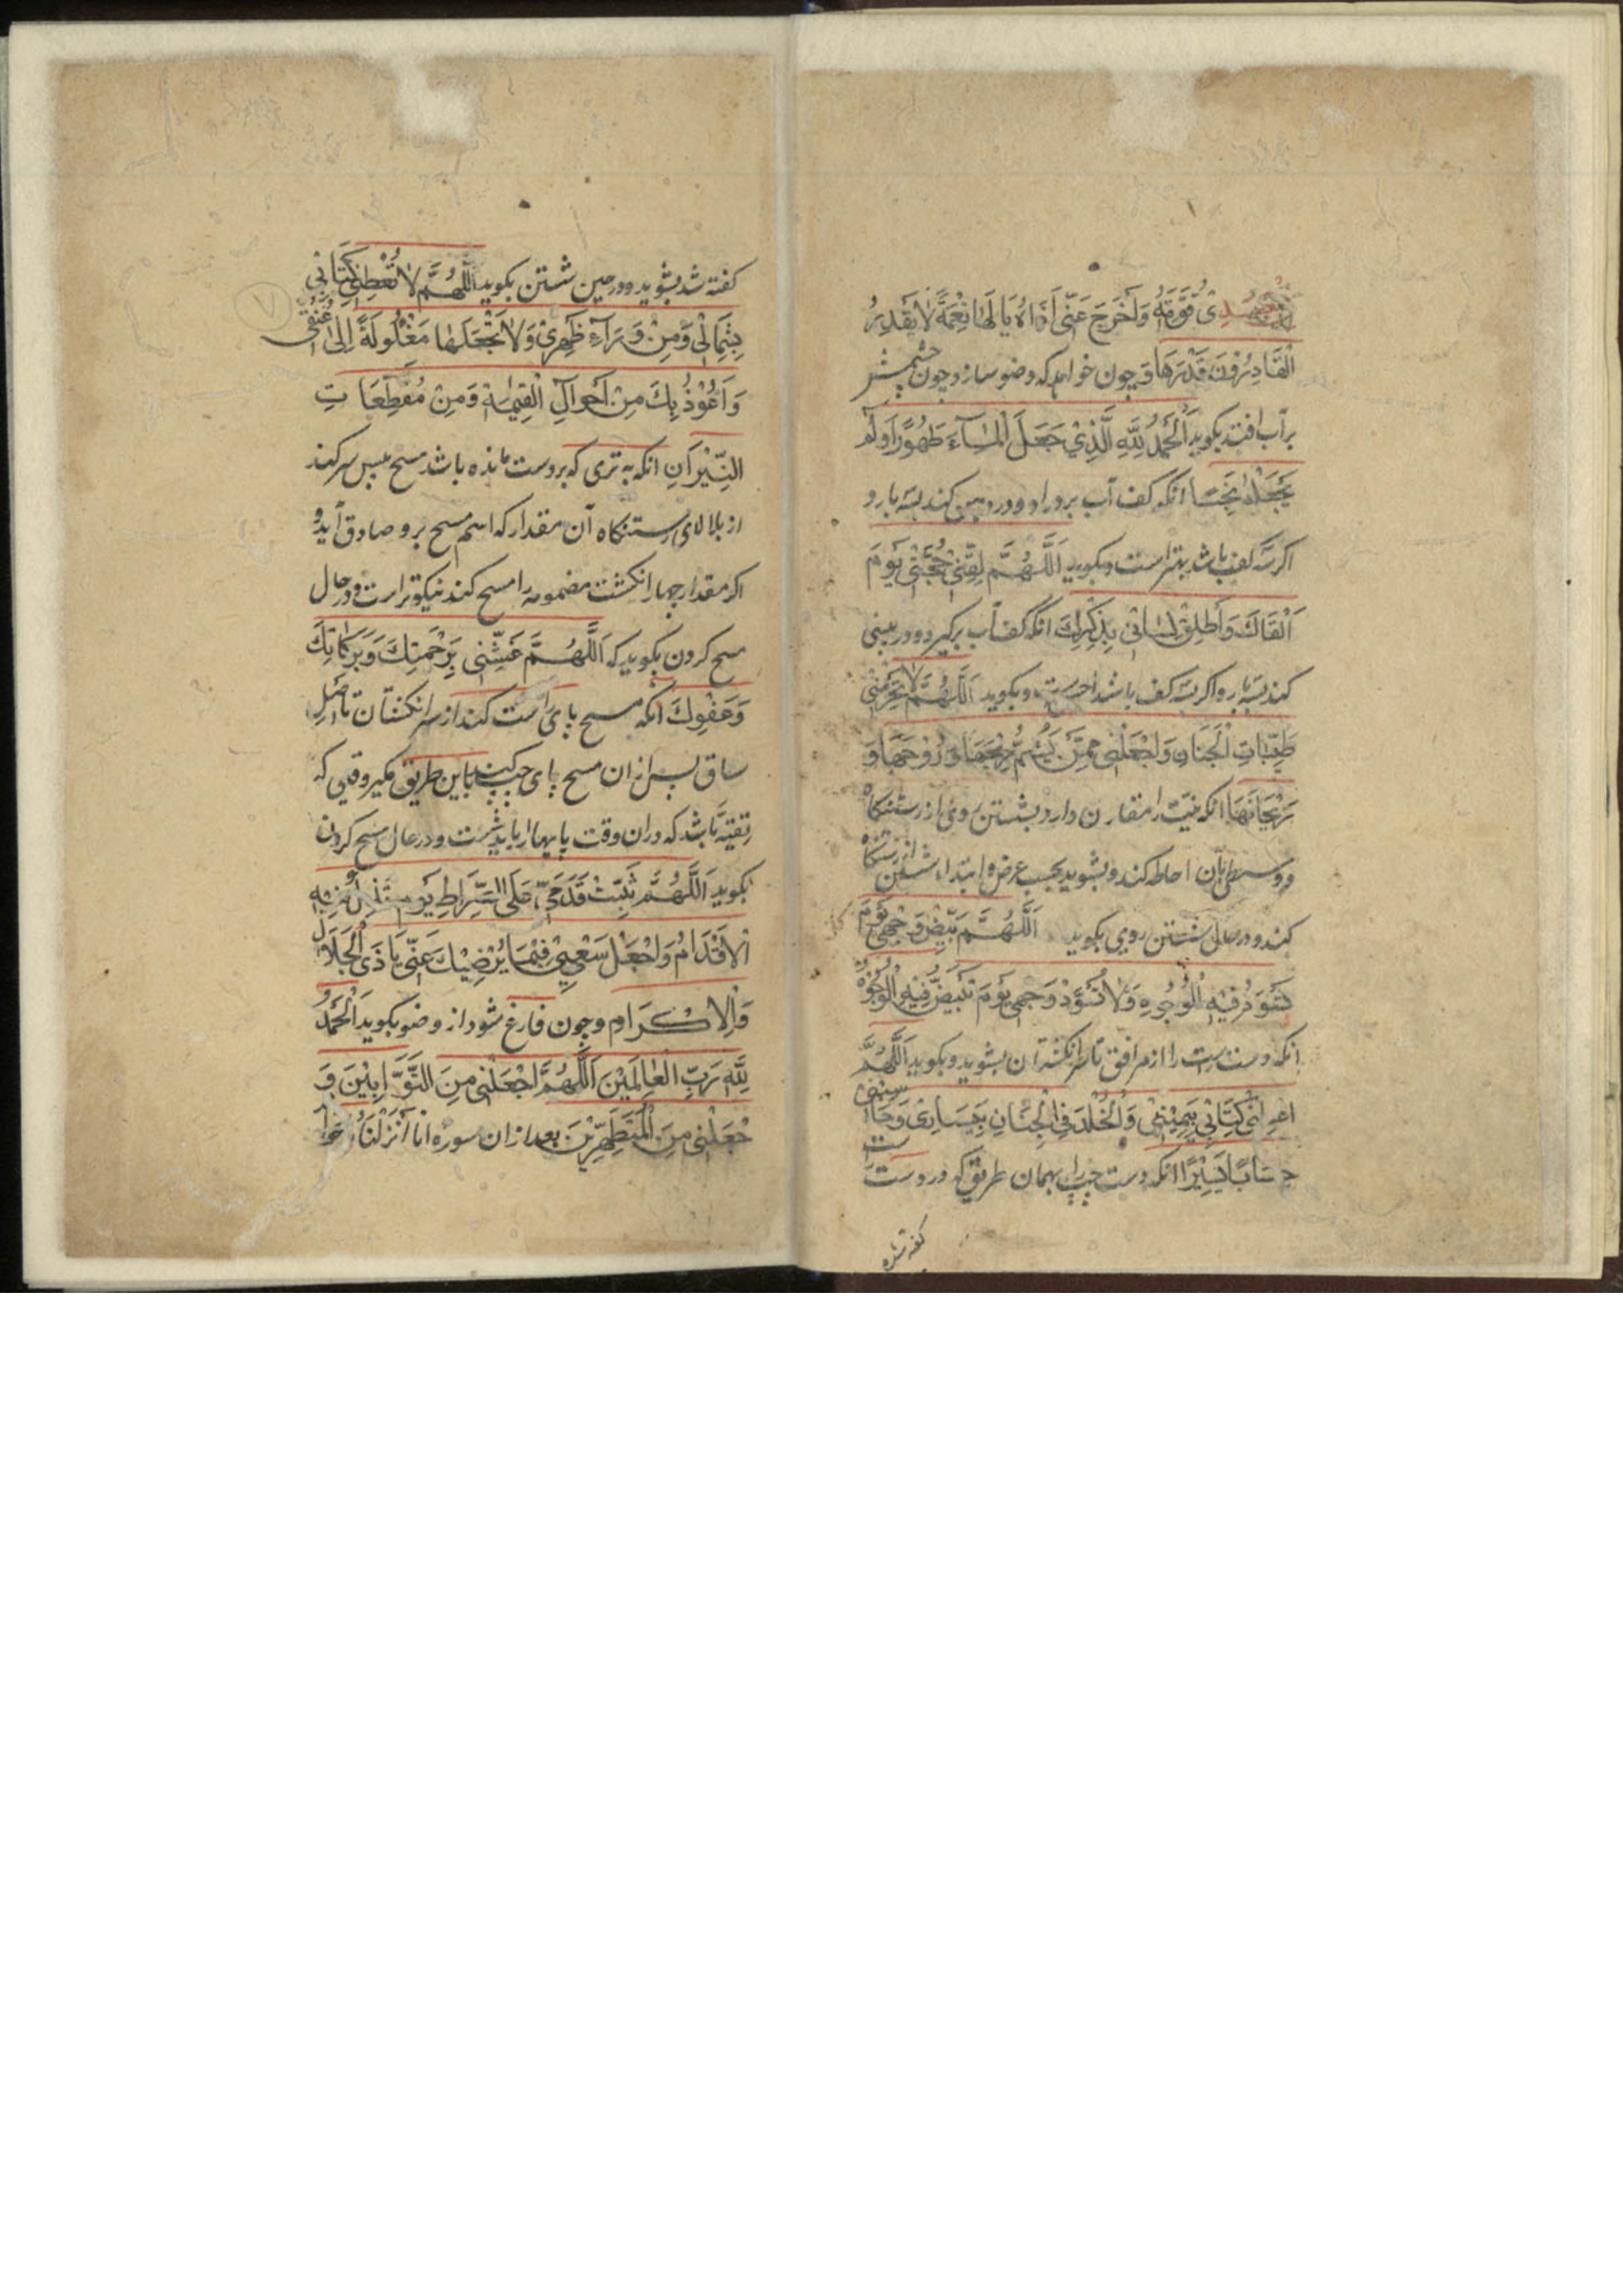 جسدی قوته واخرج عنی اذاه یا لها نعمة لا یقدر
القادرون قدرها و چون خواهد که وضو سازد چون چشمش
بر آب افتد بکوید اَلْحَمدُ لِلّٰهِ الَّذِیْ جَعَلَ الْمَآءَ طَهُوْرًا وَلَمْ
یَجْعَلْهُ نَجِسًا انکه کف آب بردارد و در دهن کند سه بار و
اکر سه کف باشد بهتر است و بکوید اَللّٰهُمَّ لَقِّنِیْ حُجَّتِیْ یَوْمَ
اَلْقَاكَ وَاَطْلِقْ لِسَانِیْ بِذِكْرِكَ انکه کف آب برکیرد و در بینی
کند سه بار و اکر سه کف باشد احسن است و بکوید اَللّٰهُمَّ لَا تُحَرِّمْنِیْ
طَیِّبَاتِ الْجَنَانِ وَاجْعَلْنِیْ مِمَّنْ یَشُمُّ رِیْحَهَا وَرَوْحَهَا وَ
رَیْحَانَهَا انکه نیّت را مقارن دارد بشستن روی از رستنکاه
و وسطی بآن احاطه کند و بشوید بحسب عرض و ابتدا شستن از رستنکاه
کند و در حال شستن روی بکوید اَللّٰهُمَّ بَیِّضْ وَجْهِیْ یَوْمَ
تَسْوَدُّ فِیْهِ الْوُجُوْهُ وَلَا تُسَوِّدْ وَجْهِیْ یَوْمَ تَبْیَضُّ فِیْهِ الْوُجُوْهُ
انکه دست راست را از مرافق تا سر انکشتان بشوید و بکوید اَللّٰهُمَّ
اعطِنِیْ كِتَابِیْ بِیَمِیْنِیْ وَالْخُلْدَ فِی الْجِنَانِ بِیَسَارِیْ وَحَاسِبْنِیْ
حِسَابًا یَسِیْرًا انکه دست چپ را بهمان طریق که در دست راست
کفته شده
کفته شد بشوید و در حین شستن بکوید اَللّٰهُمَّ لَا تُعْطِنِیْ كِتَابِیْ
بِشِمَالِیْ وَمِنْ وَرَآءِ ظَهْرِیْ وَلَا تَجْعَلْهَا مَغْلُولَةً اِلٰی عُنُقِیْ
وَاَعُوْذُ بِكَ مِنْ اَهْوَالِ الْقِیٰمَةِ وَمِنْ مُقَطَّعَاتِ
النِّیْرَانِ انکه به تری که بر دست مانده باشد مسح پیش سر کند
از بالای رستنکاه آن مقدار که اسم مسح برو صادق آید و
اکر مقدار چهار انکشت مضمومه را مسح کند نیکوتر است و در حال
مسح کردن بکوید که اَللّٰهُمَّ غَشِّنِیْ بِرَحْمَتِكَ وَبَرَكَاتِكَ
وَعَفْوِكَ انکه مسح پای راست کند از سر انکشتان تا اصل
ساق پس از ان مسح پای چپ کند باین طریق مکر وقتی که
تقیّه باشد که دران وقت پایها را باید شست و در حال مسح کردن
بکوید اَللّٰهُمَّ ثَبِّتْ قَدَمَیَّ عَلَی الصِّرَاطِ یَوْمَ تَزِلُّ فِیْهِ
الْاَقْدَامُ وَاجْعَلْ سَعْیِیْ فِیْمَا یُرْضِیْكَ عَنِّیْ یَا ذَی الْجَلَالِ
وَالْاِكْرَامِ و چون فارغ شود از وضو بکوید اَلْحَمْدُ
لِلّٰهِ رَبِّ الْعٰالَمِیْنَ اَللّٰهُمَّ اجْعَلْنِیْ مِنَ التَّوَّابِیْنَ وَ
جْعَلْنِیْ مِنَ الْمُتَطَهِّرِیْنَ بعد از ان سوره انا اَنْزَلْنَاهُ
۷